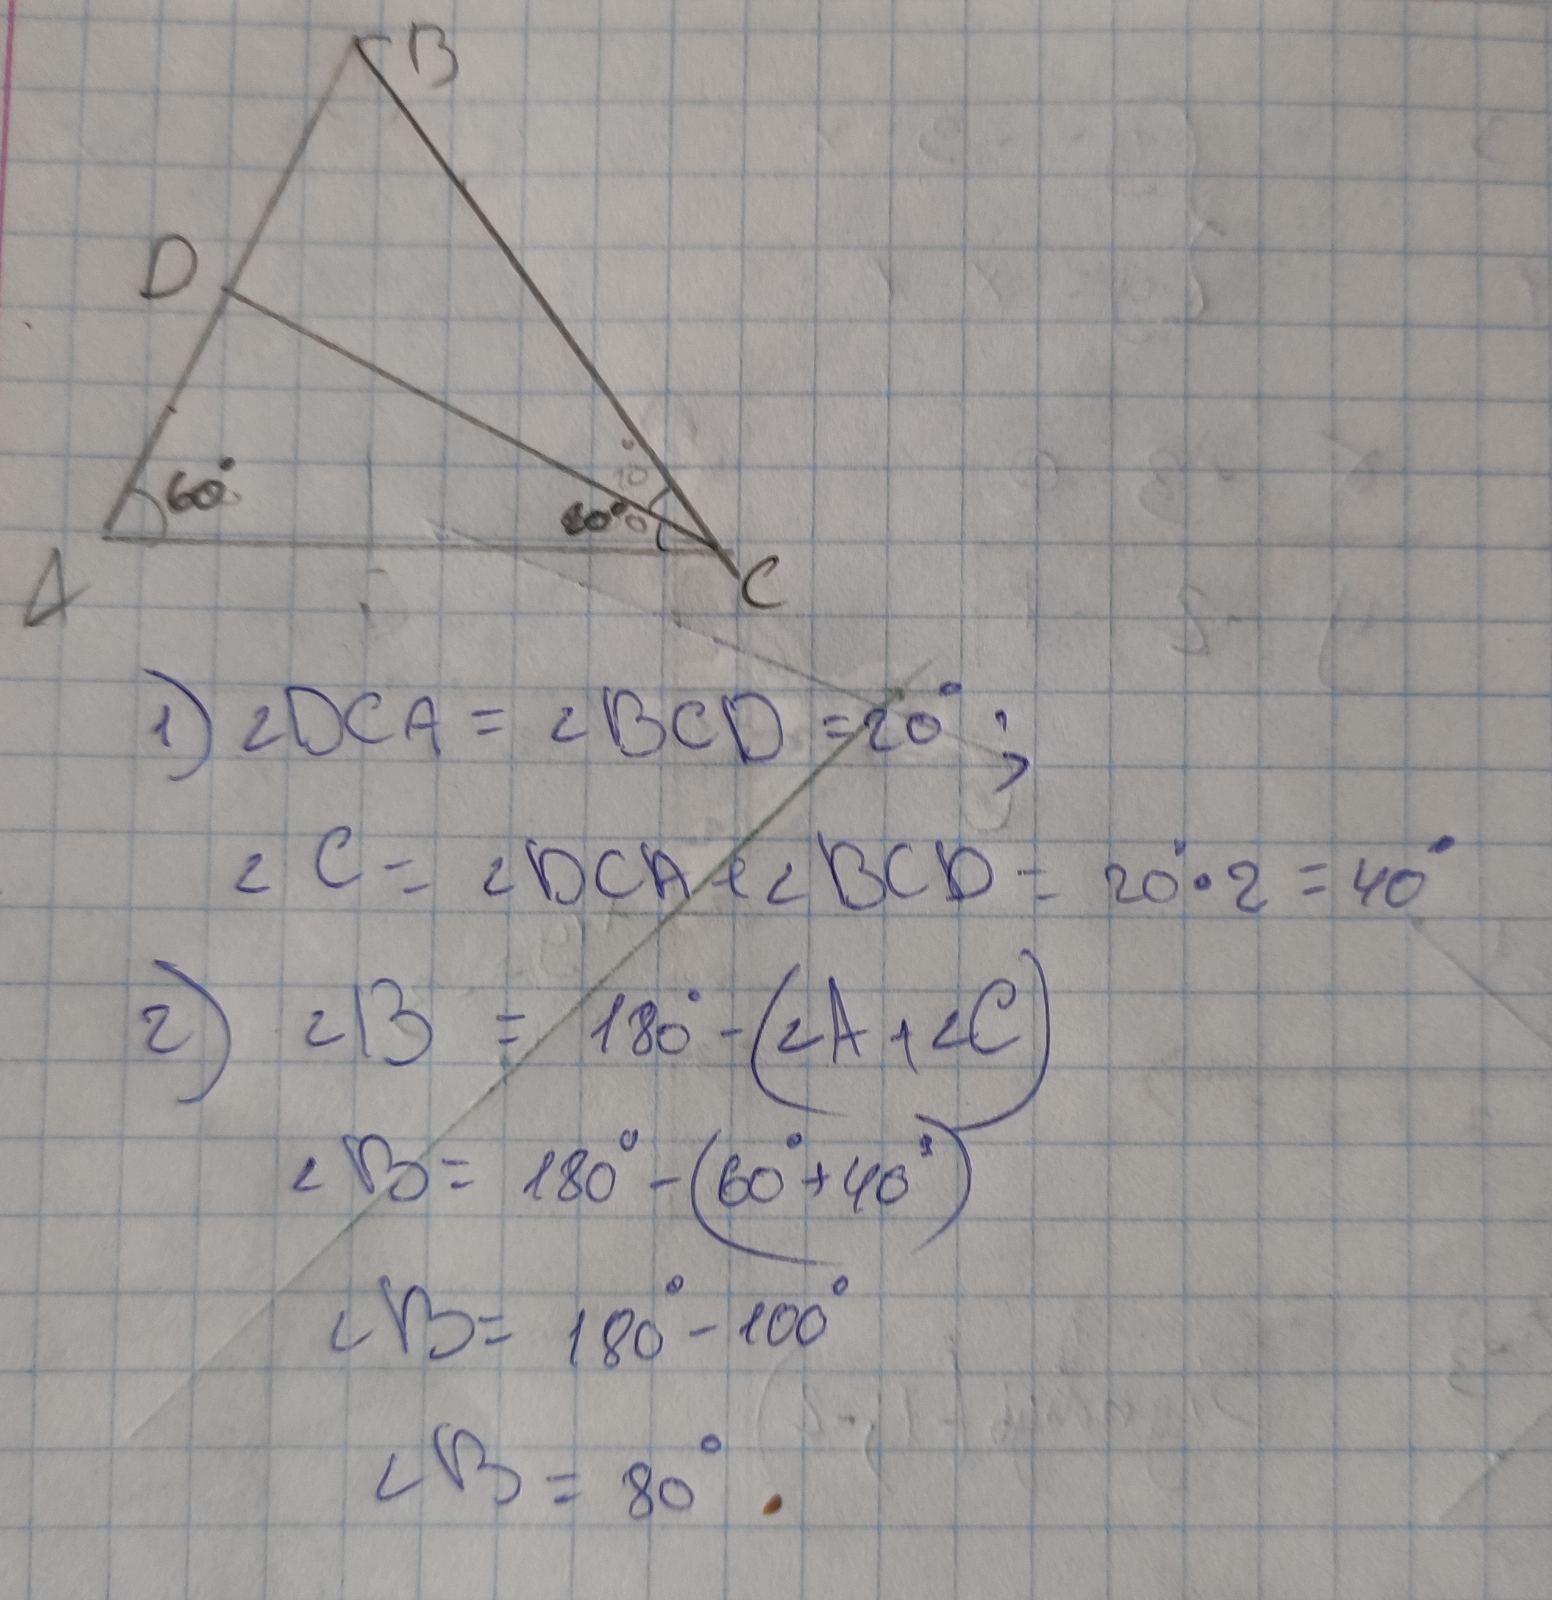 B
D
60°
A
C
1) ∠DCA = ∠BCD = 20° ;
∠C = ∠DCA + ∠BCD = 20° · 2 = 40°
2) ∠B = 180° - (∠A + ∠C)
∠B = 180° - (60° + 40°)
∠B = 180° - 100°
∠B = 80° .